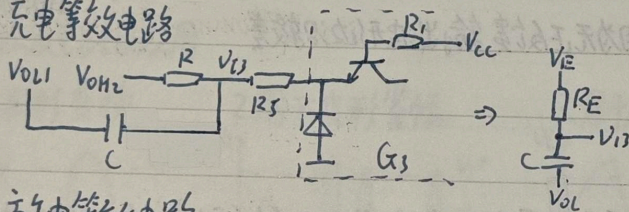 充电等效电路
VOL1 VOH2 R VI3 RS R VCC
C G3
⇒ VE RE VI3 C VOL
放电等效电路